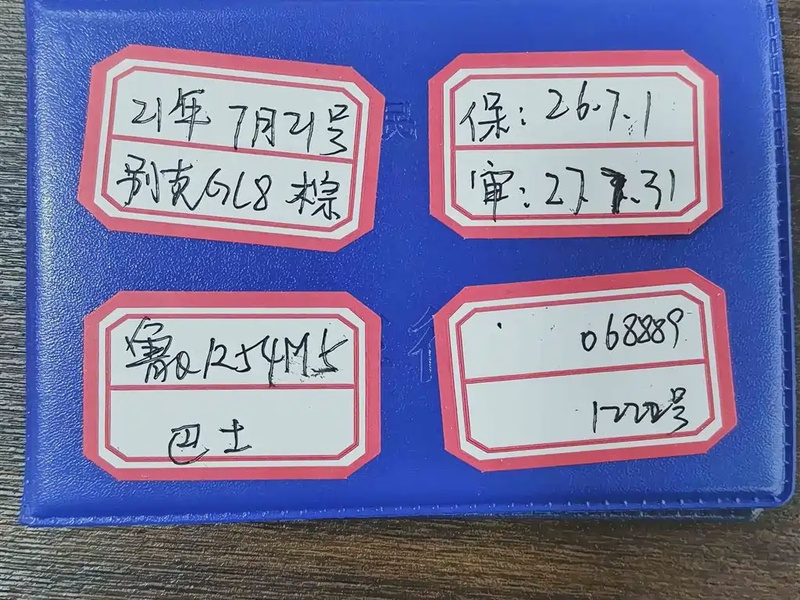 21年 7月21号
别克GL8 棕
保: 26.7.1
审: 27.7.31
鲁Q1254M5
巴士
068889
1222号
民
行